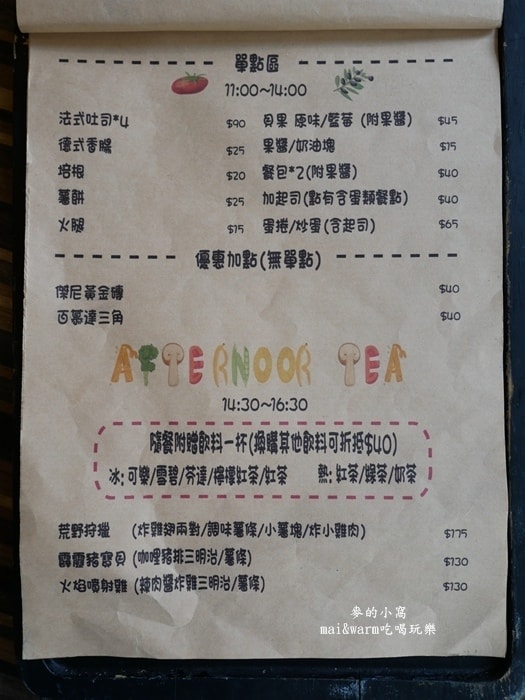 單點區
11:00~14:00
法式吐司*4 $90 貝果 原味/藍莓 (附果醬) $45
德式香腸 $25 果醬/奶油塊 $15
培根 $20 餐包*2(附果醬) $40
薯餅 $25 加起司(點有含蛋類餐點) $40
火腿 $15 蛋捲/炒蛋(含起司) $65
優惠加點(無單點)
傑尼黃金磚 $40
百慕達三角 $40
AFTERNOOR TEA
14:30~16:30
隨餐附贈飲料一杯(換購其他飲料可折抵$40)
冰: 可樂/雪碧/芬達/檸檬紅茶/紅茶 熱: 紅茶/綠茶/奶茶
荒野狩獵 (炸雞翅兩對/調味薯條/小薯塊/炸小雞肉) $175
霹靂豬寶貝 (咖哩豬排三明治/薯條) $130
火焰噴射雞 (辣肉醬炸雞三明治/薯條) $130
麥的小窩
mai&warm吃喝玩樂